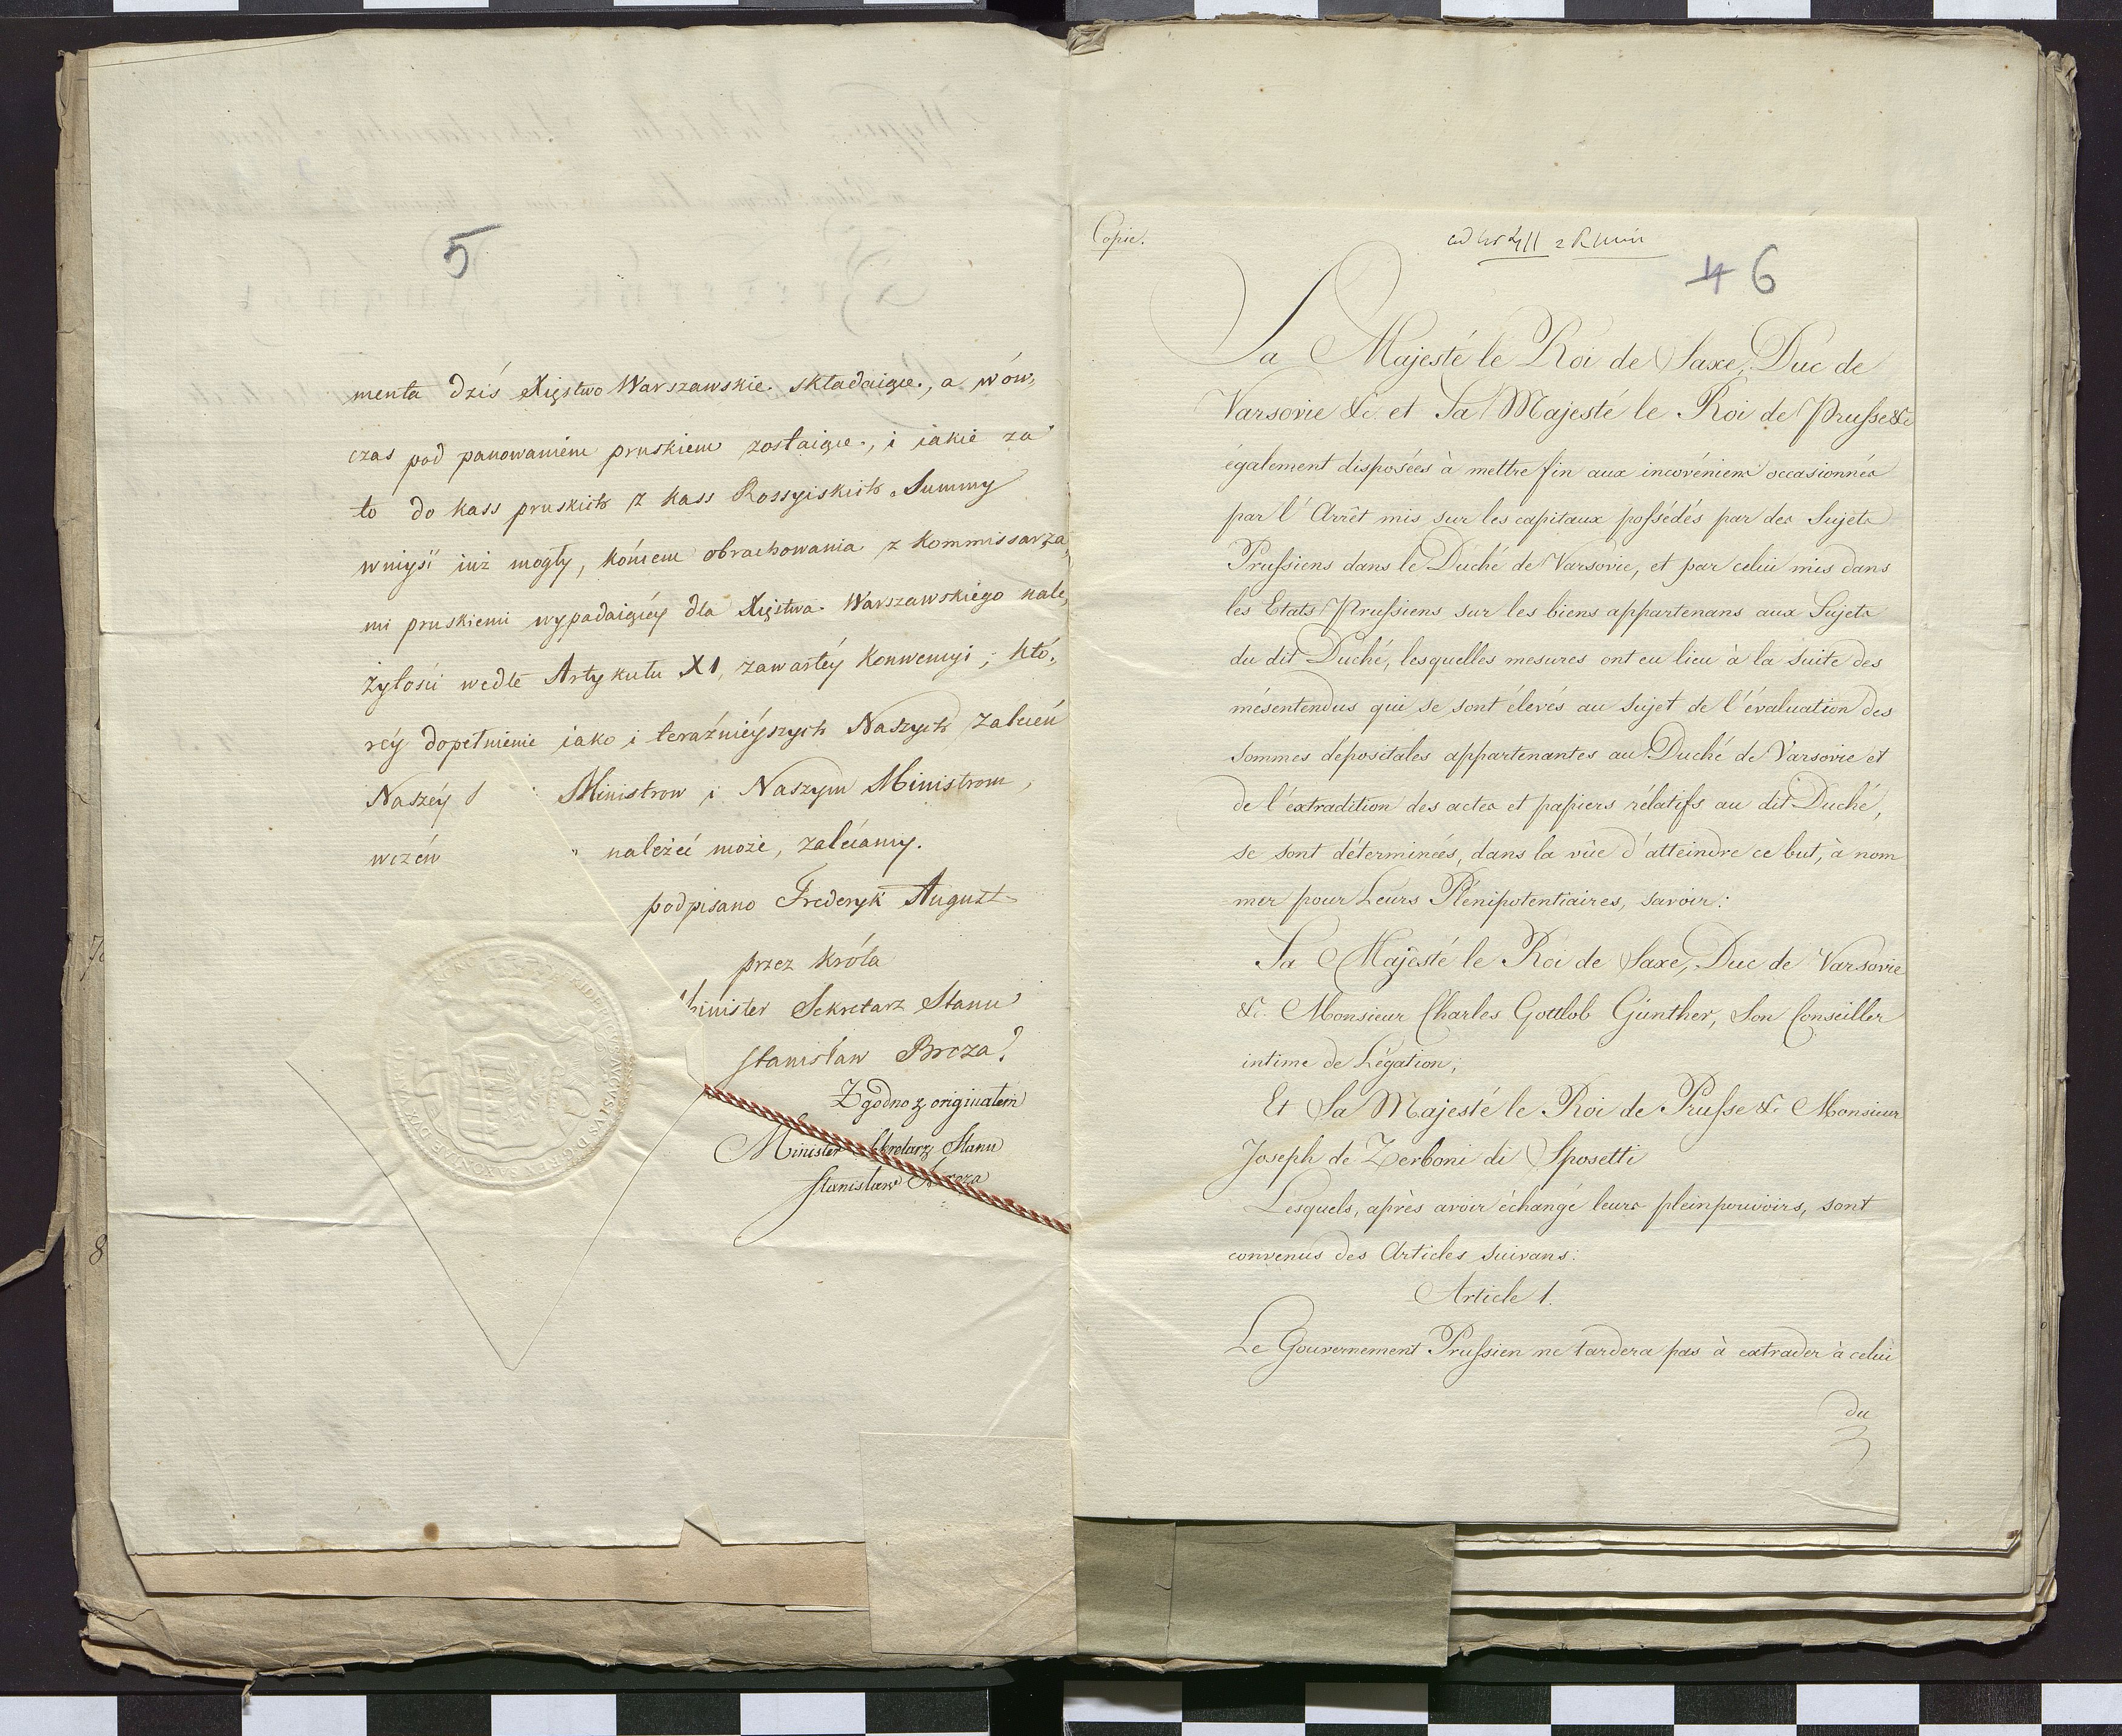 5
menta dziś Xięstwo Warszawskie składaiące, a wów,
czas pod panowaniem pruskiem zostaiące, i iakie za
to do kass pruskich z kass Rossyiskich Summy
wniyść iuż mogły, końcem obrachowania z Kommissarza,
mi pruskiemi wypadaiącéy dla Xięstwa Warszawskiego nale,
żytości wedle Artykułu XI, zawartéy Konwencyi; któ,
réy dopełnienie iako i teraźnieyszych Naszych zaleceń
Naszéy Ministrow i Naszym Ministrom,
należeć może, zalecamy.
podpisano Frederyk August
przez króla
Minister Sekretarz Stanu
Stanisław Breza
Zgodno z originałem
Minister Sekretarz Stanu
Stanisław Breza
Copie.
4 6
Sa Majesté le Roi de Saxe, Duc de
Varsovie &c. et Sa Majesté le Roi de Prusse &c
également disposées à mettre fin aux incovéniens occasionnés
par l'Arrêt mis sur les capitaux possédés par des Sujets
Prussiens dans le Duché de Varsovie, et par celui mis dans
les Etats Prussiens sur les biens appartenans aux Sujets
du dit Duché, lesquelles mesures ont eu lieu à la suite des
mésentendus qui se sont élevés au sujet de l'évaluation des
sommes depositales appartenantes au Duché de Varsovie et
de l'extradition des actes et papiers rélatifs au dit Duché,
se sont déterminées, dans la vûe d'atteindre ce but, à nom
mer pour Leurs Plénipotentiaires, savoir:
Sa Majesté le Roi de Saxe, Duc de Varsovie
&c. Monsieur Charles Gottlob Günther, Son Conseiller
intime de Légation;
Et Sa Majesté le Roi de Prusse &c Monsieur
Joseph de Zerboni di Sposetti
Lesquels, après avoir échangé leurs pleinpouvoirs, sont
convenus des Articles suivans:
Article 1.
Le Gouvernement Prussien ne tardera pas à extrader à celui
du